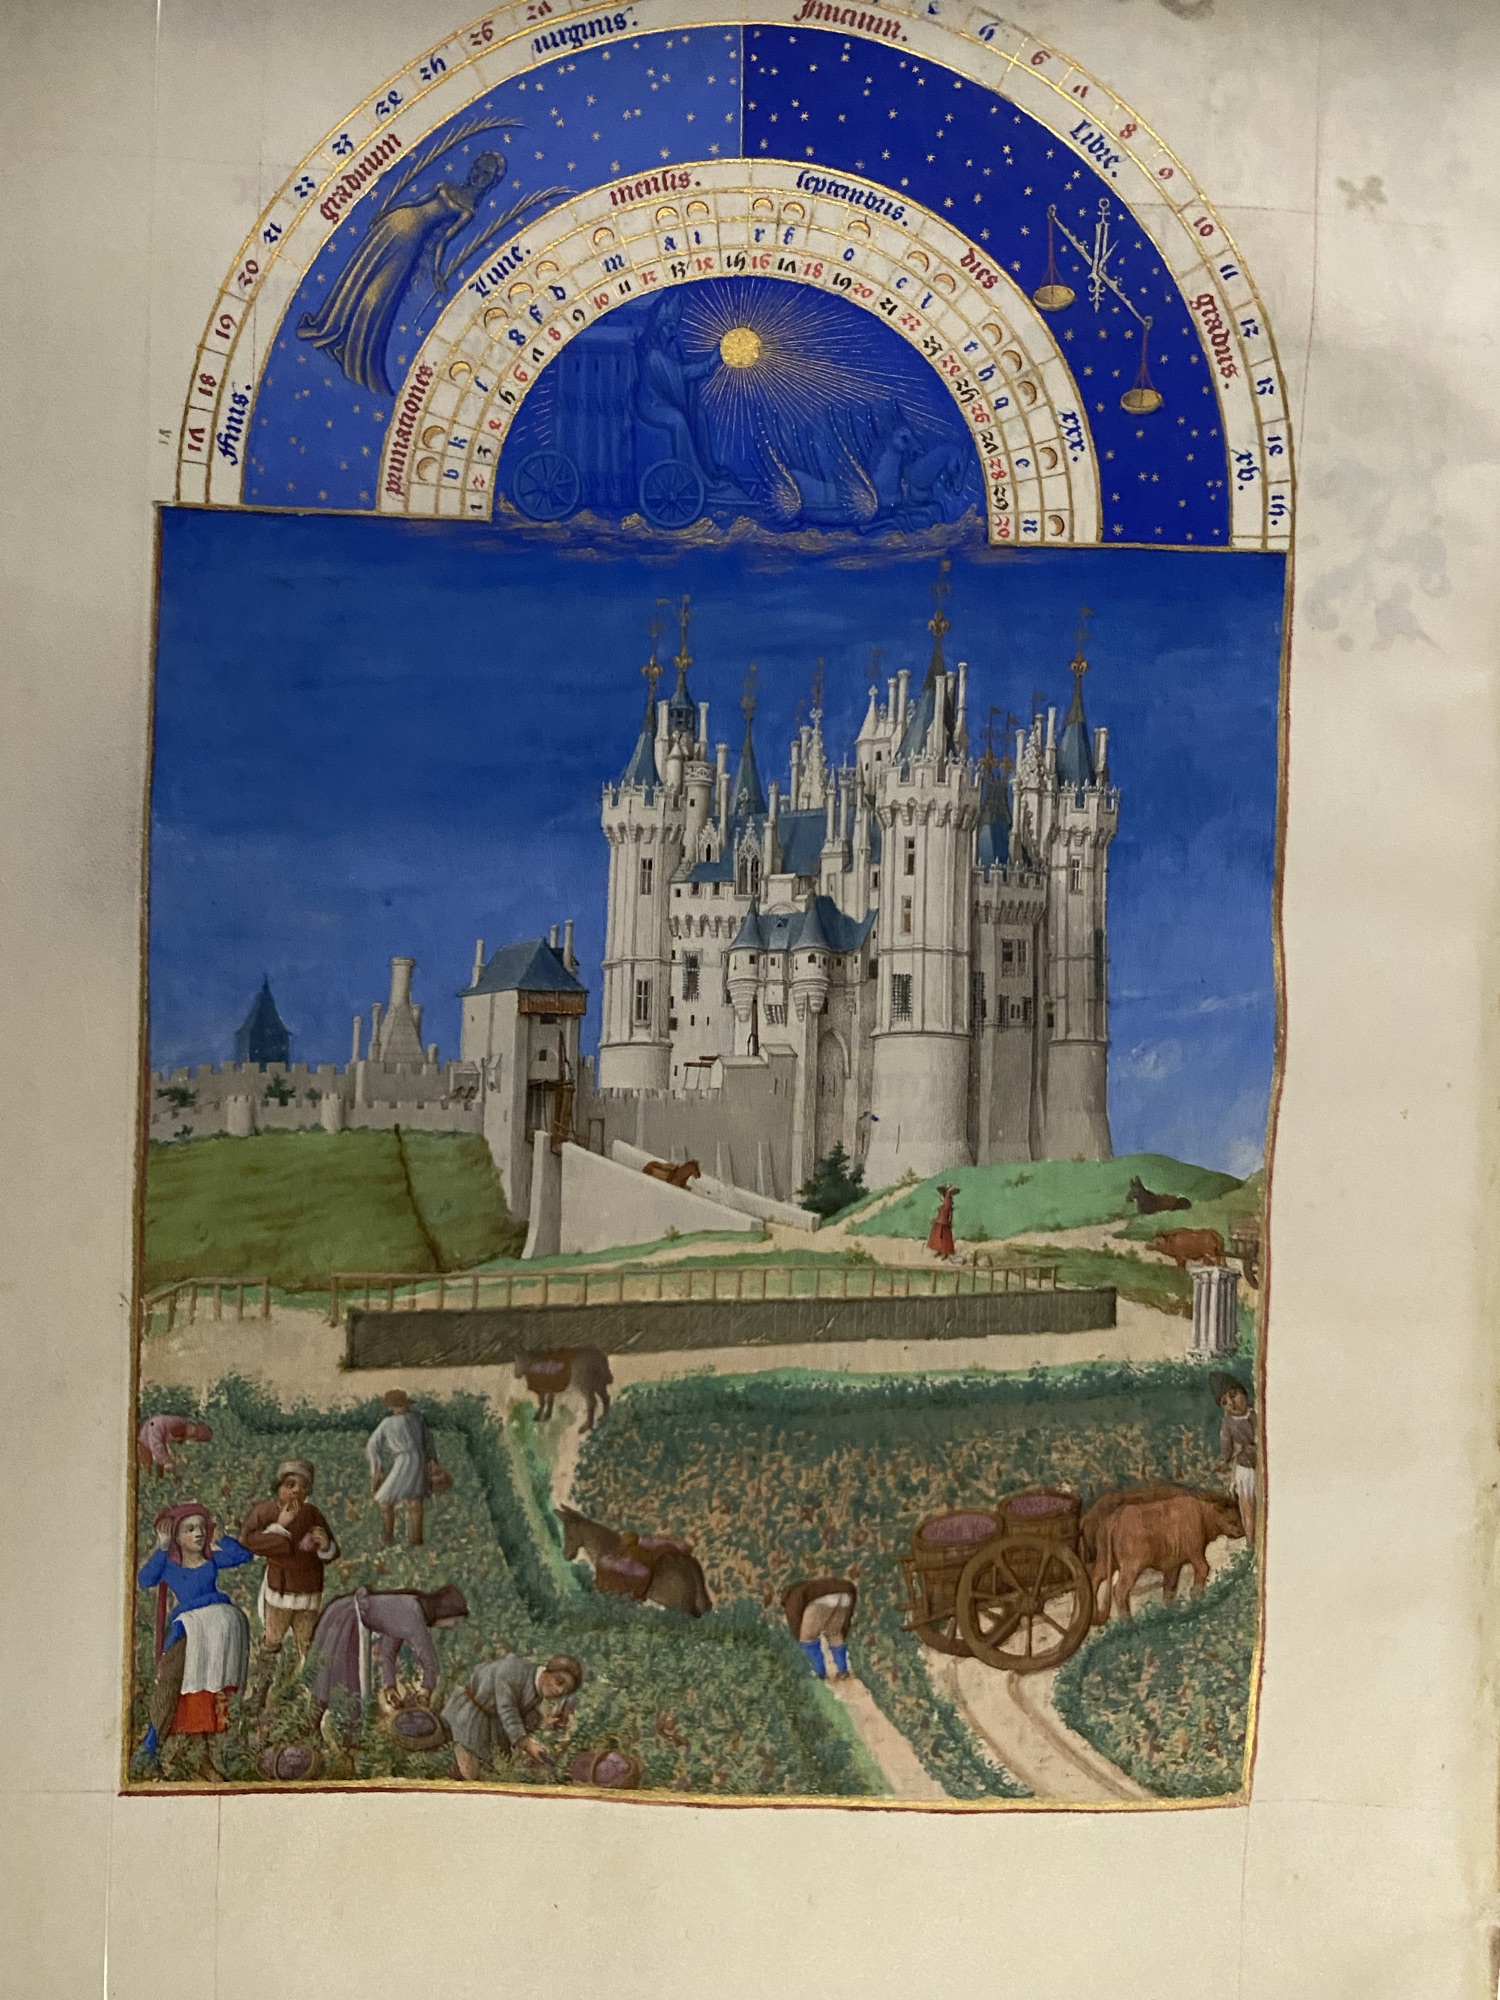 17 18 19 20 21 22 23 24 25 26 27 4 5 6 7 8 9 10 11 12 13 14 15.
ffinis. graduum virginis. Inicium. libre. gradus. xv.
primationes. lune. mensis. septembris. dies xxx.
b k s g f d m a i r f o c l t h q e n
1 2 3 4 5 6 7 8 9 10 11 12 13 14 15 16 17 18 19 20 21 22 23 24 25 26 27 28 29 30